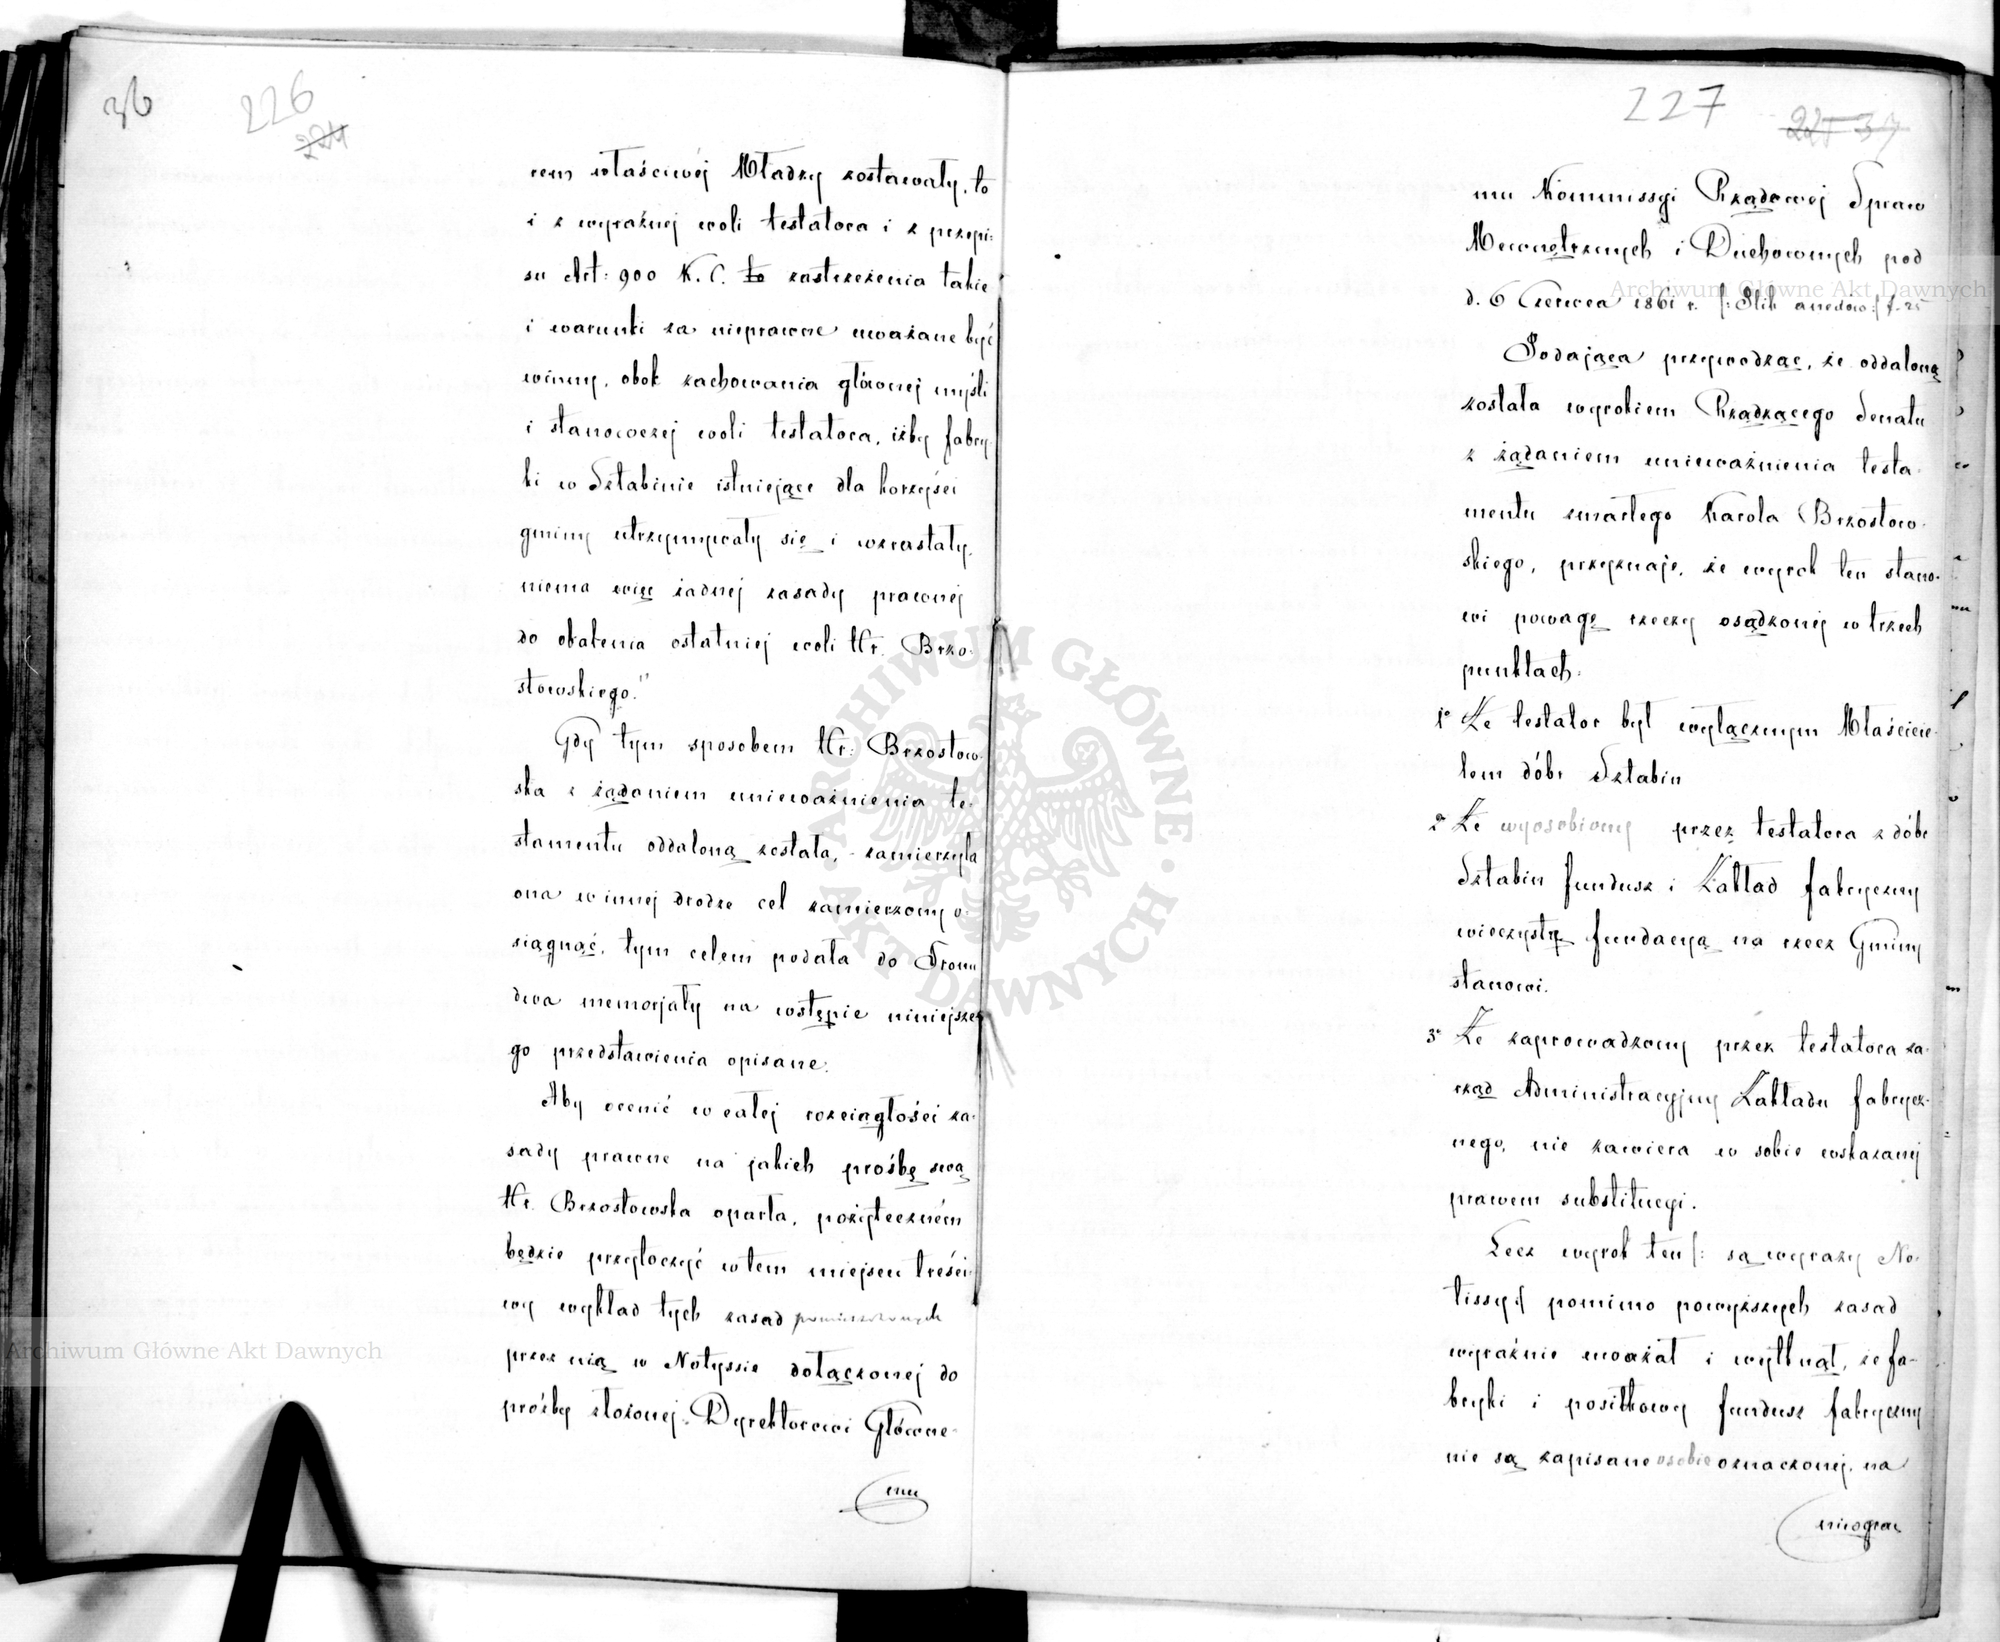 36
226
224
rem właściwéj Władzy zostawały, to
i z wyraźnej woli testatora i z przepi-
su Art: 900 K. C. to zastrzeżenia takie
i warunki za nieprawne uważane być
winny, obok zachowania głównej myśli
i stanowczej woli testatora, iżby fabry-
ki w Sztabinie istniejące dla korzyści
gminy utrzymywały się i wzrastały,
niema więc żadnej zasady prawnej
do obalenia ostatniej woli Hr. Brzo-
stowskiego."
Gdy tym sposobem Hr: Brzostow-
ska z żądaniem unieważnienia te-
stamentu oddaloną została, - zamierzyła
ona w innej drodze cel zamierzony o-
siągnąć, tym celem podała do Tronu
dwa memorjały na wstępie niniejsze-
go przedstawienia opisane.
Aby ocenić w całej rozciągłości za-
sady prawne na jakich prośbę swą
Hr. Brzostowska oparła, pożyteczném
będzie przytoczyć w tem miejscu treści-
wy wykład tych zasad pomieszczonych
przez nią w Notyssie dołączonej do
prośby złożonej, Dyrektorowi Główne-
mu
227
225 37
mu Kommissyi Rządowej Spraw
Wewnętrznych i Duchownych pod
d. 6 Czerwca 1861 r.
Podająca przywodząc, że oddaloną
została wyrokiem Rządzącego Senatu
z żądaniem unieważnienia testa-
mentu zmarłego Karola Brzostow-
skiego, przyznaje, że wyrok ten stano-
wi powagę rzeczy osądzonej w trzech
punktach:
1° Że testator był wyłącznym Właścicie-
lem dóbr Sztabin
2° Że wyosobiony przez testatora z dóbr
Sztabin fundusz i Zakład fabryczny
wieczystą fundacyą na rzecz Gminy
stanowi.
3° Że zaprowadzony przez testatora za-
rząd Administracyjny Zakładu fabrycz-
nego, nie zawiera w sobie wskazanej
prawem substitucyi.
Lecz wyrok ten /: są wyrazy No-
tissy :/ pomimo powyższych zasad
wyraźnie uważał i wytknął, że fa-
bryki i posiłkowy fundusz fabryczny
nie są zapisane osobie oznaczonej, na
Archiwum Główne Akt Dawnych
Archiwum Główne Akt Dawnych
ARCHIWUM GŁÓWNE · AKT DAWNYCH ·